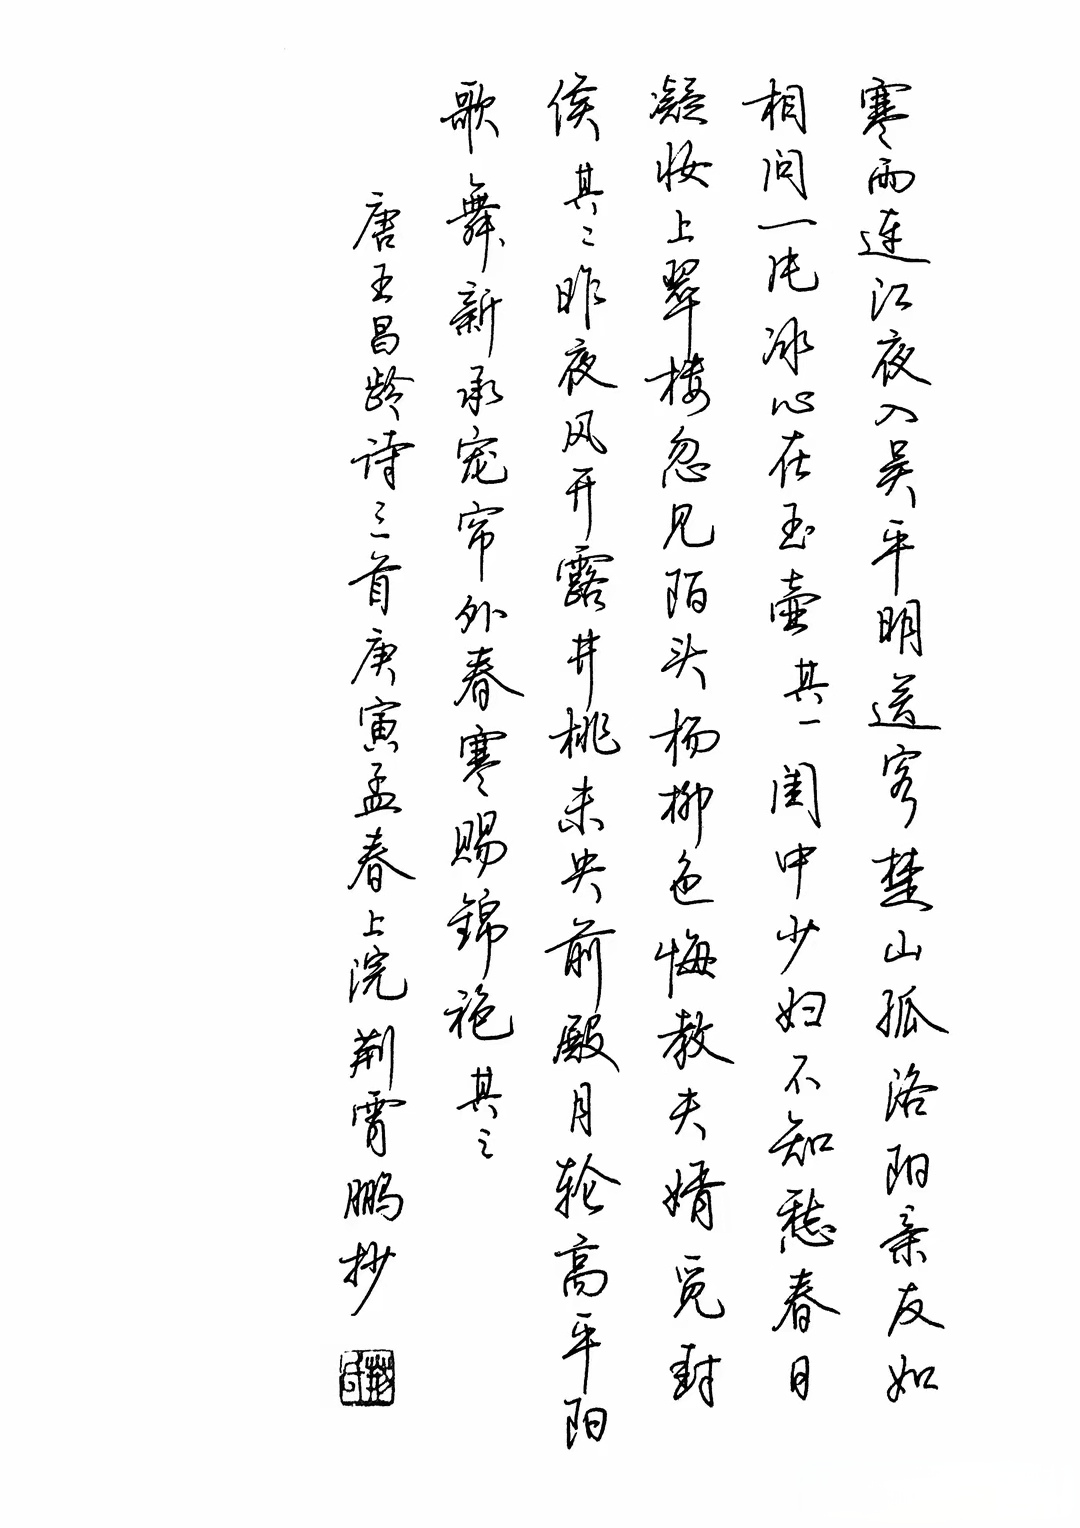 寒雨连江夜入吴平明送客楚山孤洛阳亲友如
相问一片冰心在玉壶其一闺中少妇不知愁春日
凝妆上翠楼忽见陌头杨柳色悔教夫婿觅封
侯其二昨夜风开露井桃未央前殿月轮高平阳
歌舞新承宠帘外春寒赐锦袍其三
唐王昌龄诗三首庚寅孟春上浣荆霄鹏抄